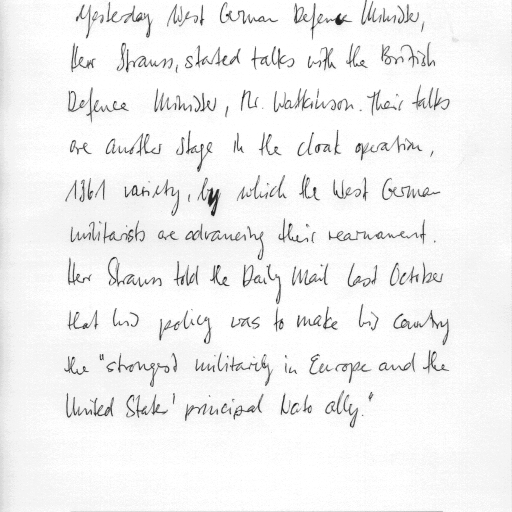 Yesterday West German Defence Minister,
Herr Strauss, stated talks with the British
Defence Minister, Mr. Watkinson. Their talks
are another stage in the cloak operation,
1961 variety, by which the West German
militarists are advancing their rearmament.
Herr Strauss told the Daily Mail last October
that his policy was to make his country
the "strongest militarily in Europe and the
United States' principal Nato ally."